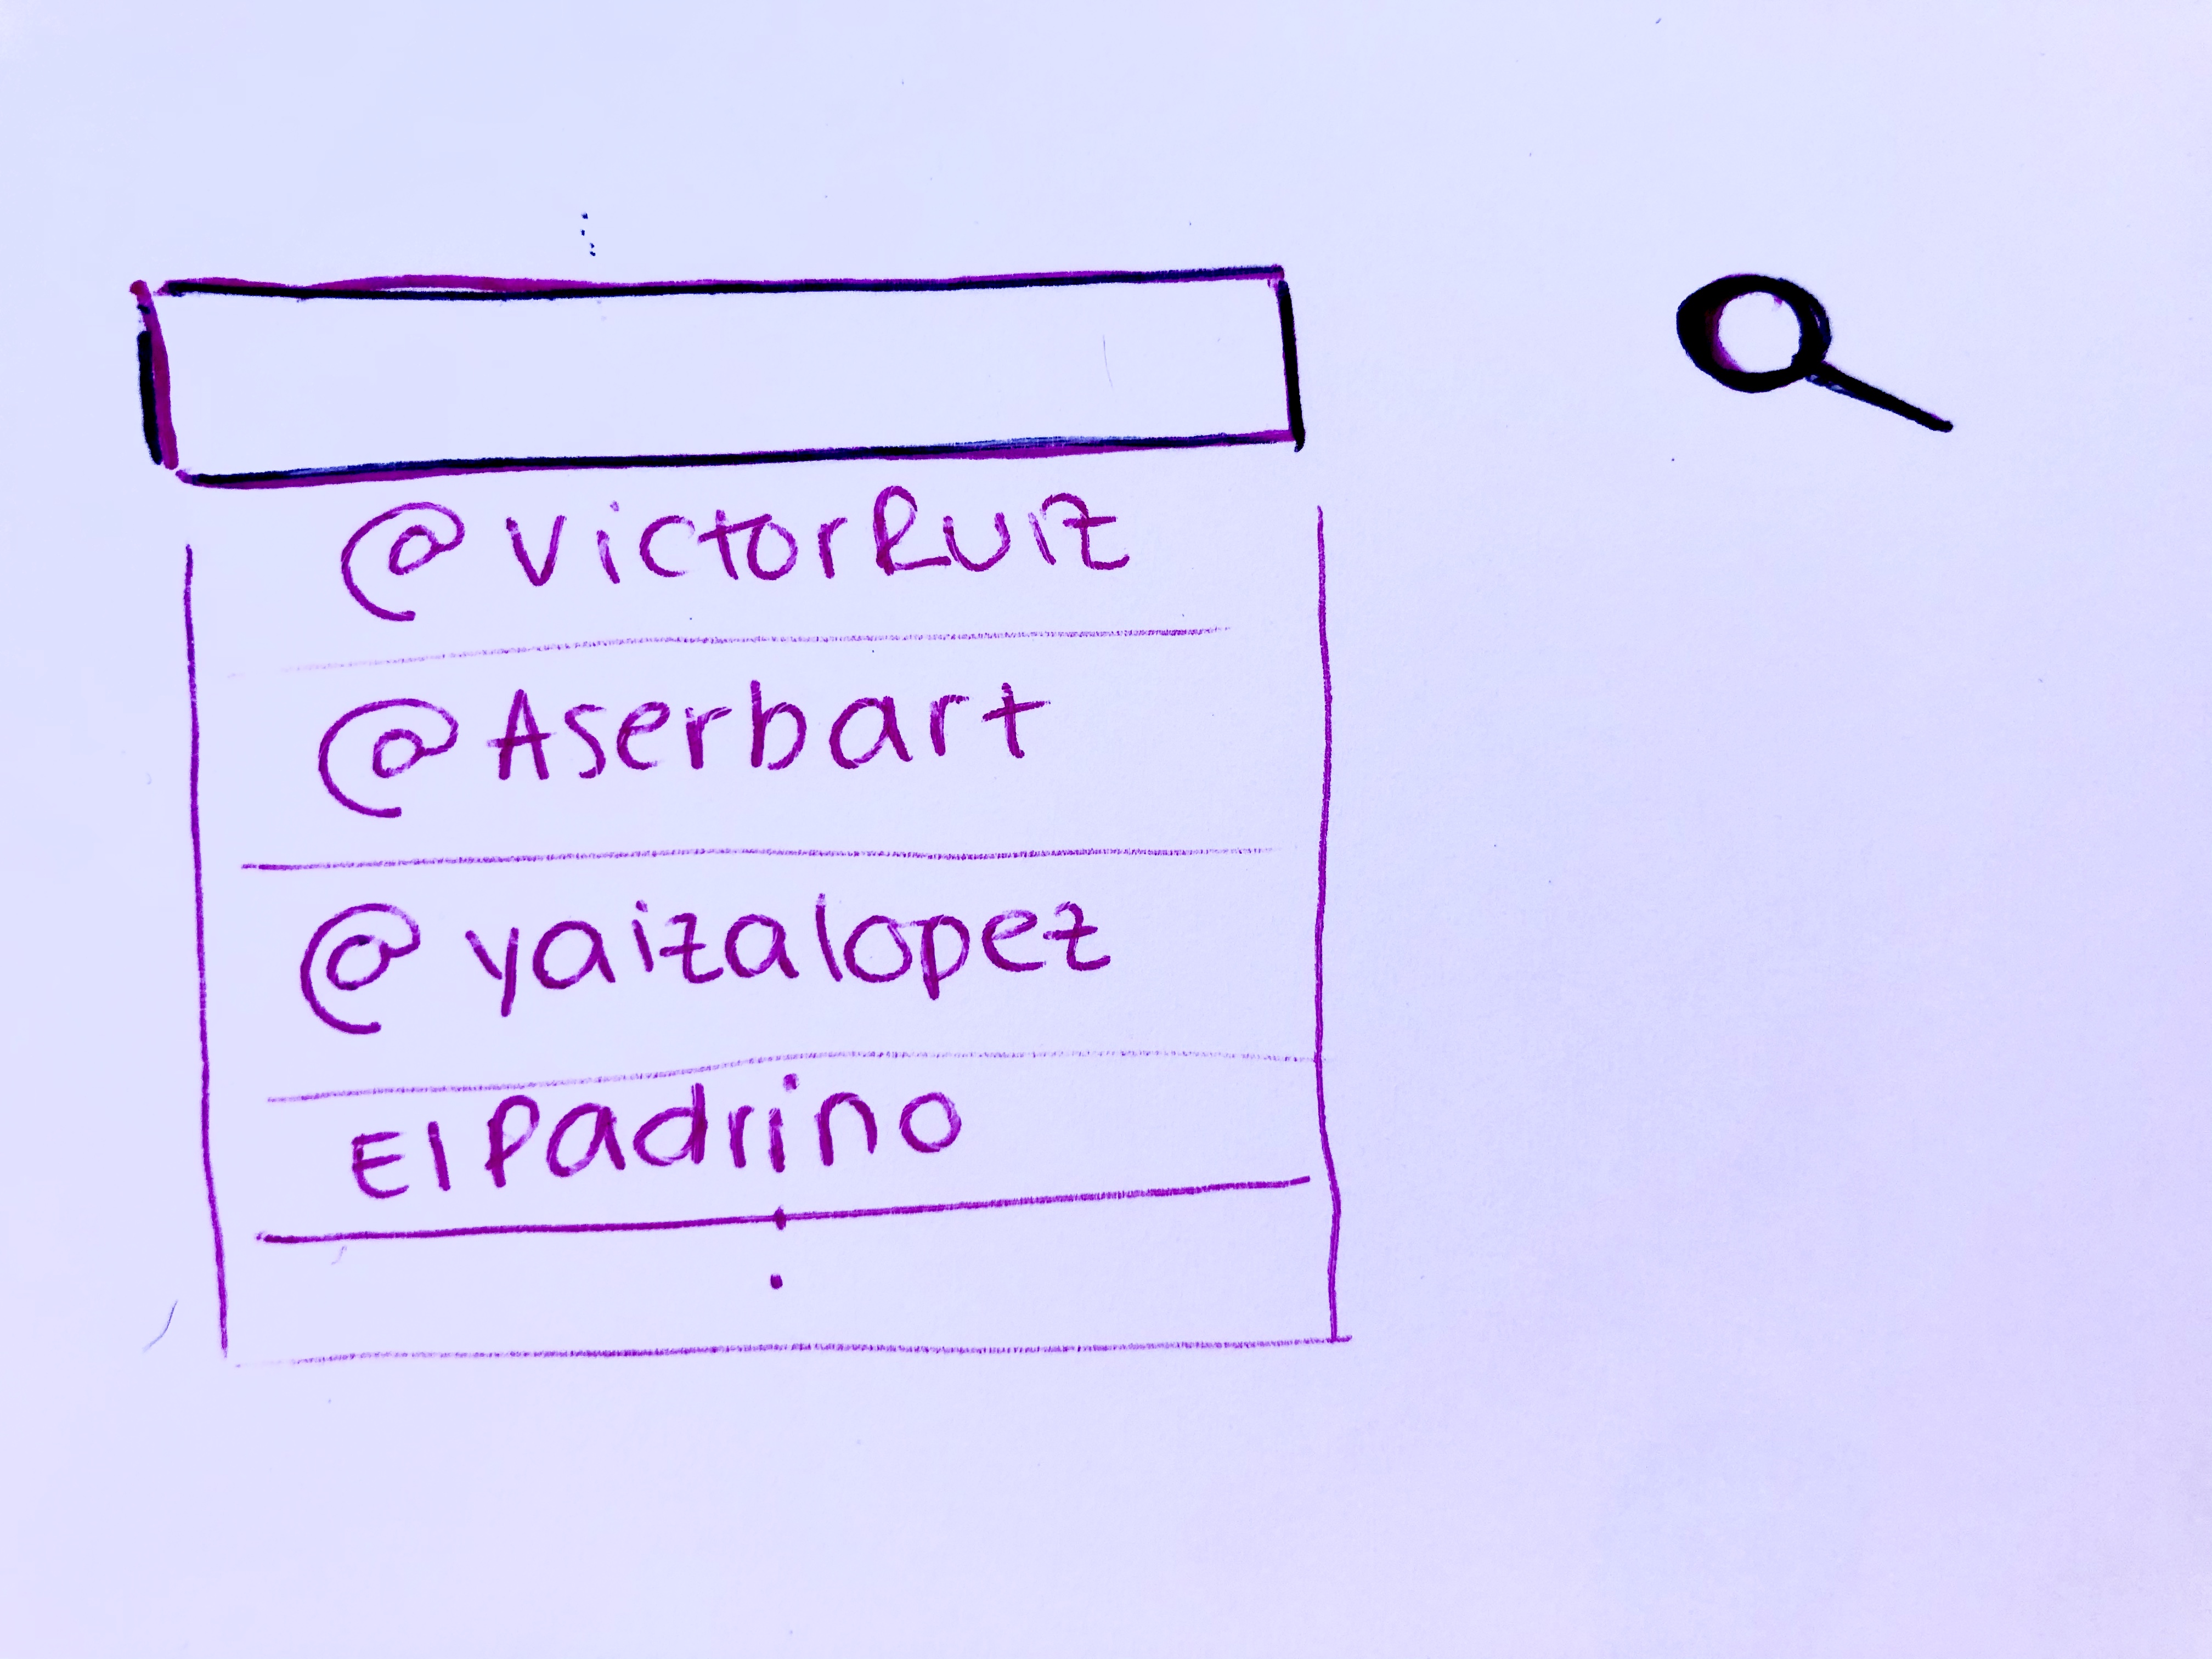 @victorRuiz
@Aserbart
@yaizalopez
El Padrino